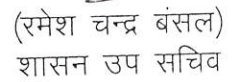 (रमेश चन्द्र बंसल)
शासन उप सचिव